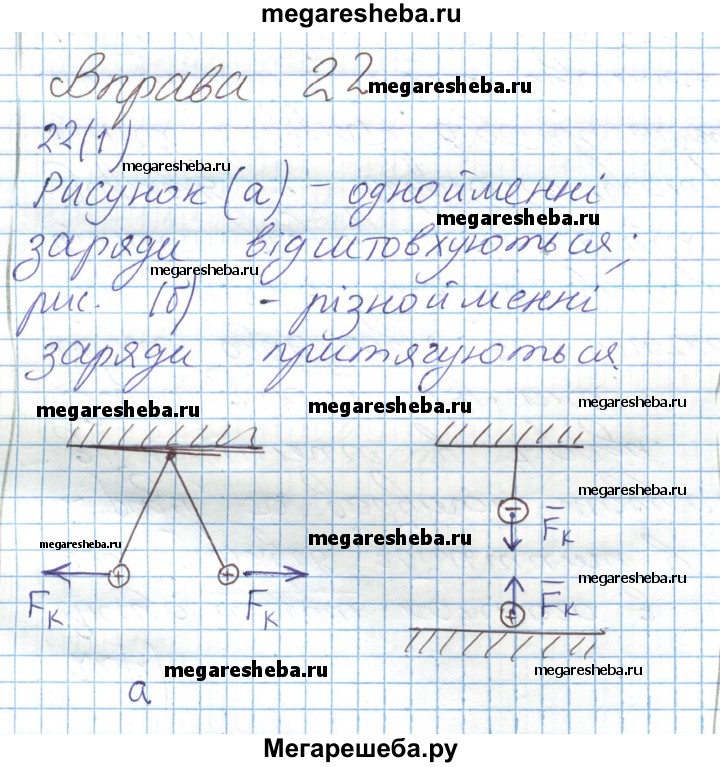 megaresheba.ru
Вправа 22
megaresheba.ru
22(1)
megaresheba.ru
Рисунок (а) - однойменні
megaresheba.ru
заряди відштовхуються;
megaresheba.ru
рис. (б) - різнойменні
заряди притягуються
megaresheba.ru
megaresheba.ru
megaresheba.ru
megaresheba.ru
− F̅к
megaresheba.ru
megaresheba.ru
+ +
megaresheba.ru
Fк Fк
+ F̅к
megaresheba.ru
megaresheba.ru
а
Мегарешеба.ру